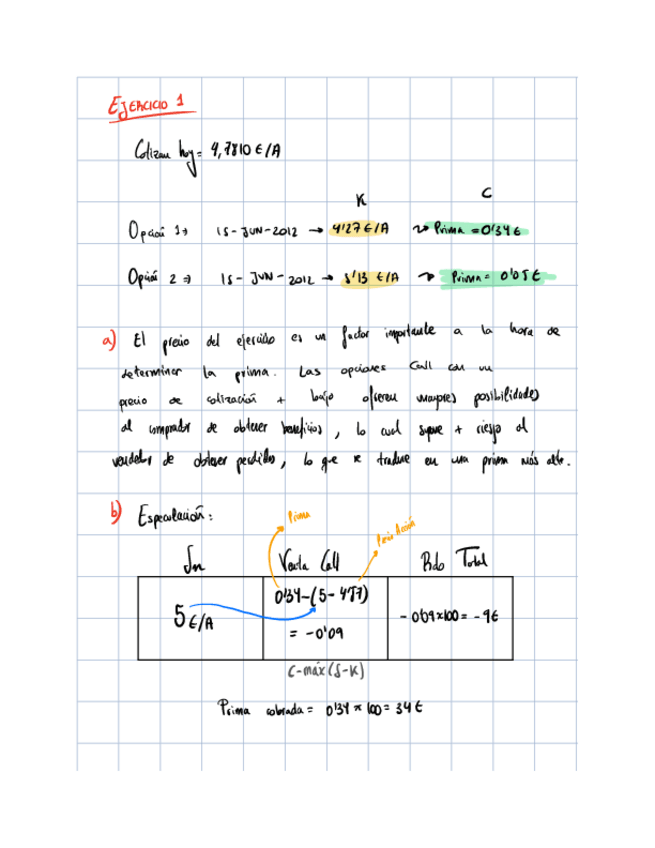 EJERCICIO 1
Cotizan hoy = 4,7810 €/A
K C
Opción 1 → 15-JUN-2012 → 4'27 €/A → Prima = 0'34 €
Opción 2 ⇒ 15-JUN-2012 → 5'13 €/A → Prima = 0'05 €
a) El precio del ejercicio es un factor importante a la hora de
determinar la prima. Las opciones Call con un
precio de cotización + bajo ofrecen mayores posibilidades
al comprador de obtener beneficios, lo cual supone + riesgo al
vendedor de obtener perdidas, lo que se traduce en una prima más alta.
b) Especulación:
Prima
Precio Acción
Venta Call Rdo Total
5 €/A 0'34-(5-4'57) = -0'09 -0'09x100 = -9€
C-máx(S-K)
Prima cobrada = 0'34 x 100 = 34 €